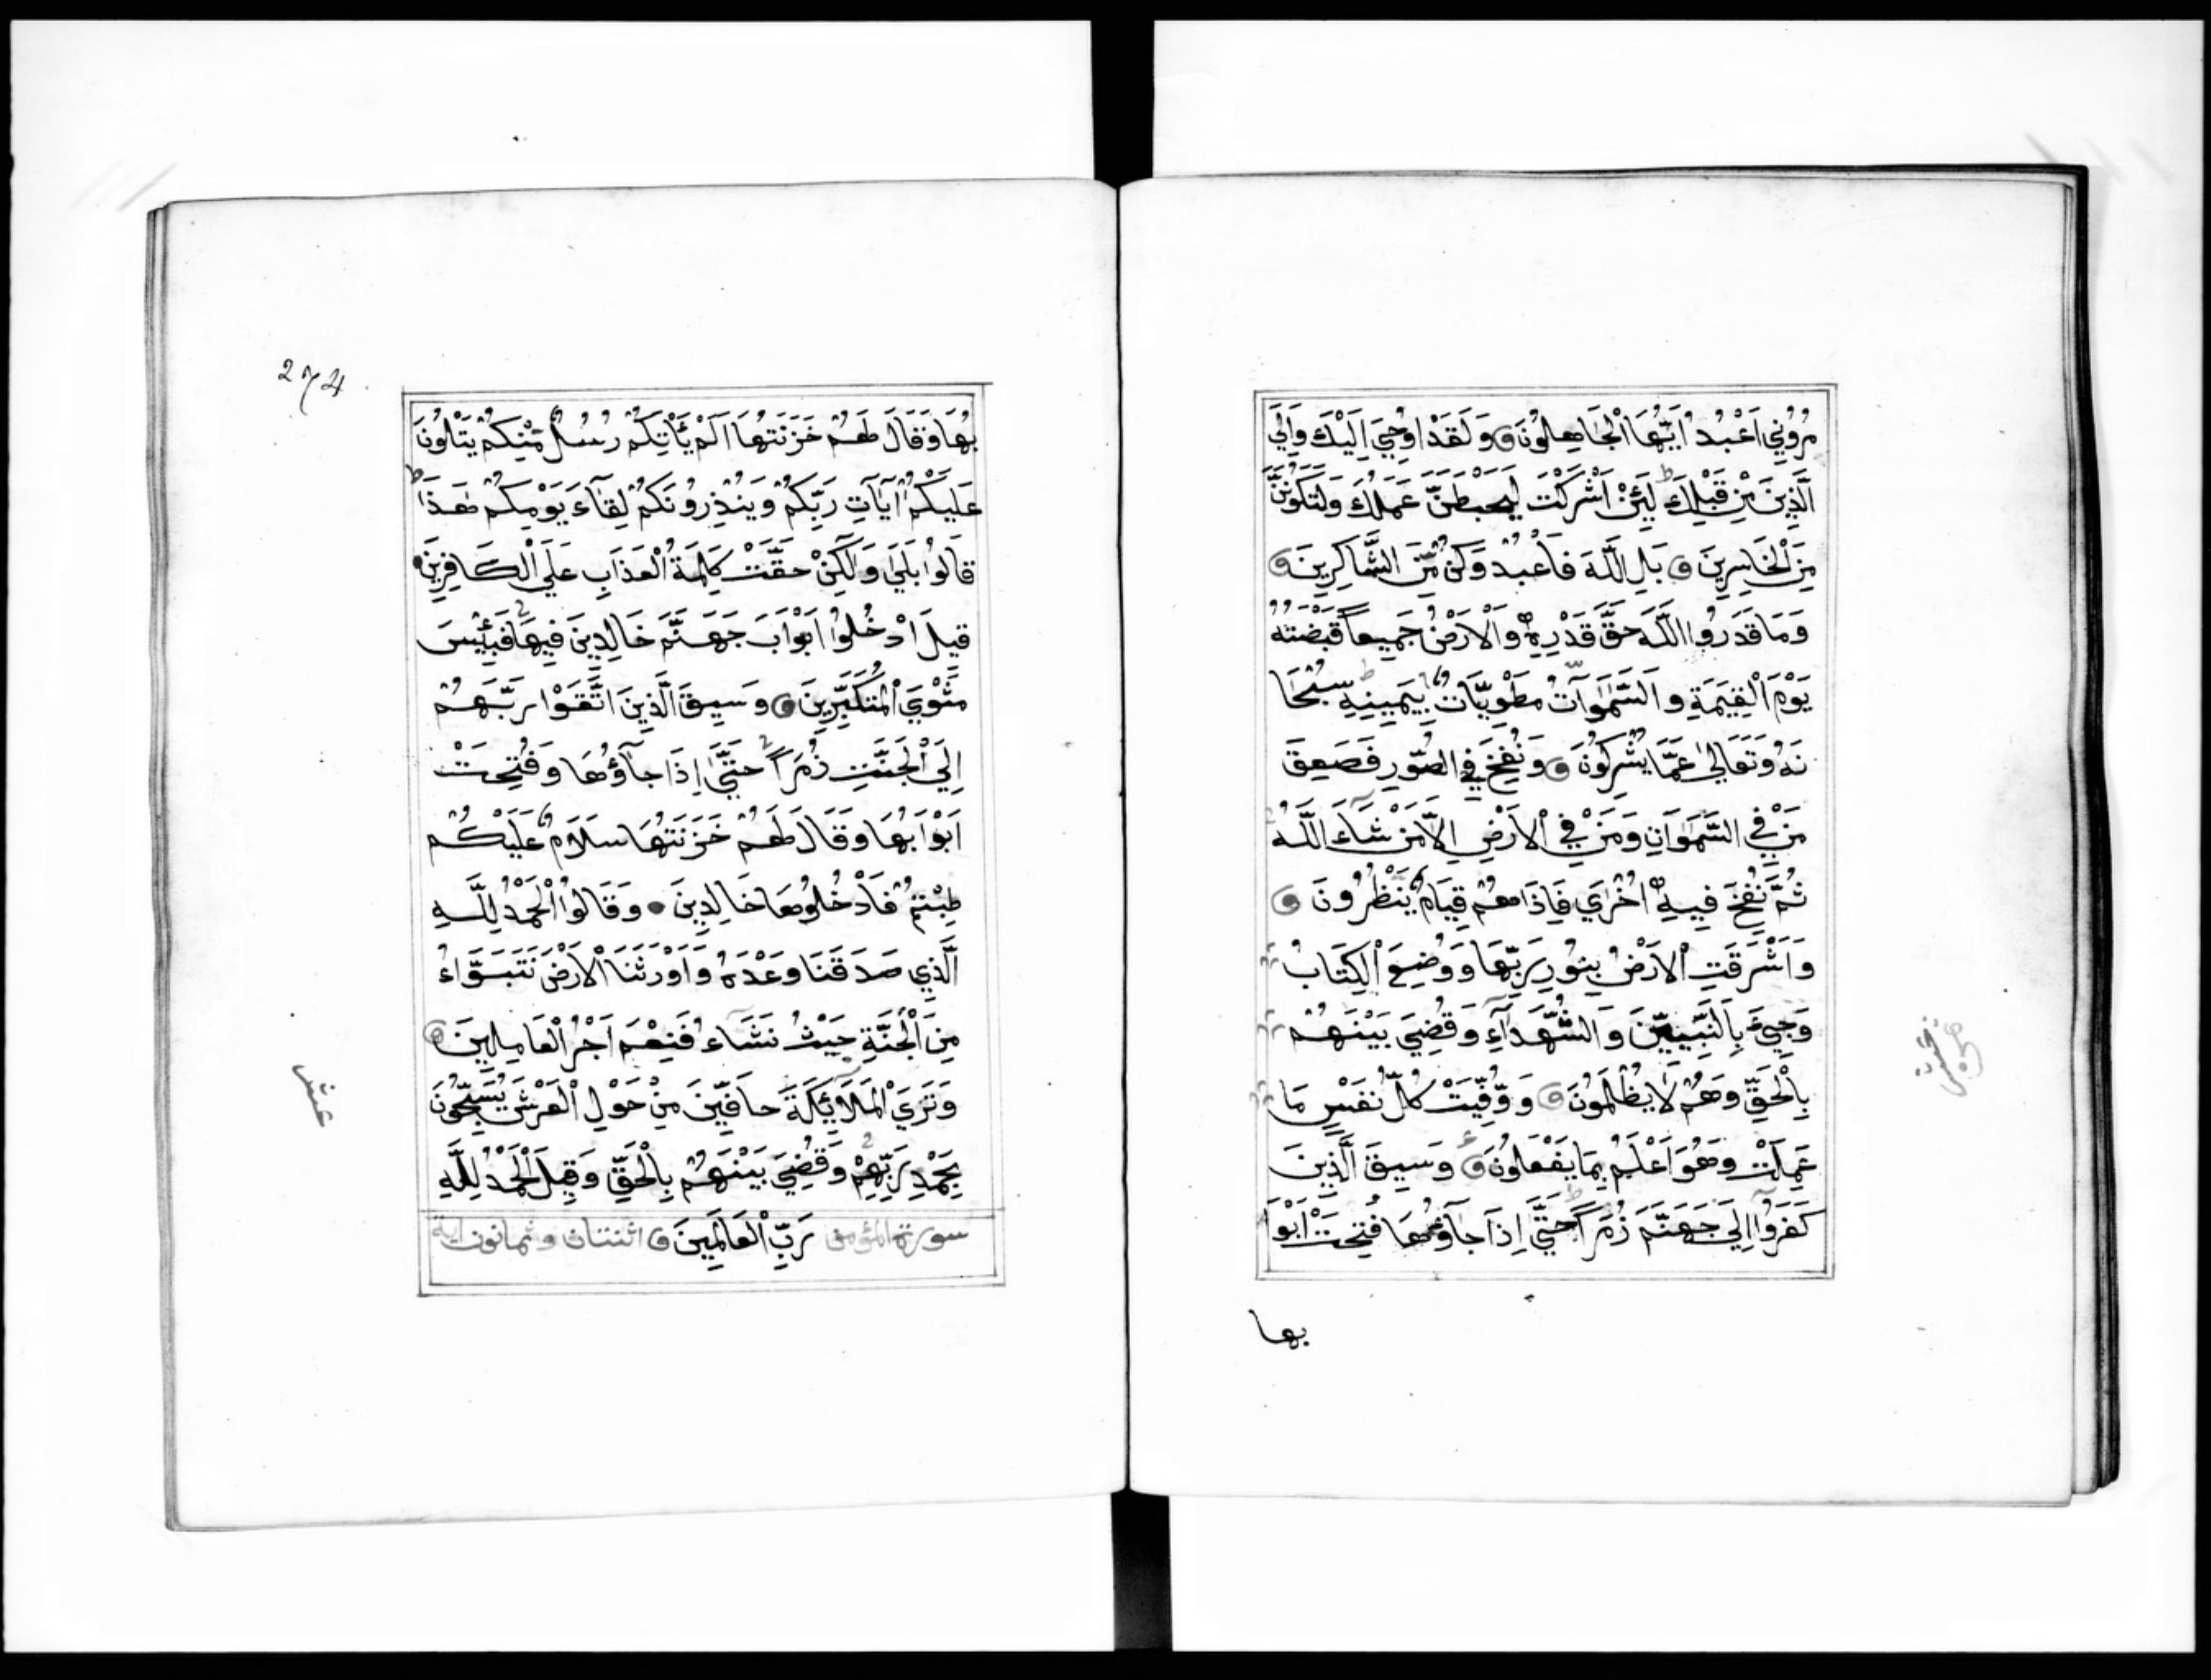 مُرُونِي اَعْبُدُ اَيُّهَا الْجَاهِلُونَ وَلَقَدْ اُوحِيَ اِلَيْكَ وَاِلَي
الَّذِينَ مِنْ قَبْلِكَ لَئِنْ اَشْرَكْتَ لَيَحْبَطَنَّ عَمَلُكَ وَلَتَكُونَنَّ
مِنَ الْخَاسِرِينَ بَلِ اللَّهَ فَاعْبُدْ وَكُنْ مِّنَ الشَّاكِرِينَ
وَمَا قَدَرُوا اللَّهَ حَقَّ قَدْرِهِ وَالْاَرْضُ جَمِيعاً قَبْضَتُهُ
يَوْمَ الْقِيَمَةِ وَالسَّمٰوَاتُ مَطْوِيَّاتٌ بِيَمِينِهِ سُبْحَا
نَهُ وَتَعَالَىٰ عَمَّا يُشْرِكُونَ وَنُفِخَ فِي الصُّورِ فَصَعِقَ
مَنْ فِي السَّمٰوَاتِ وَمَنْ فِي الْاَرْضِ اِلَّا مَنْ شَاءَ اللَّهُ
ثُمَّ نُفِخَ فِيهِ اُخْرَاي فَاِذَا هُمْ قِيَامٌ يَنْظُرُونَ
وَاَشْرَقَتِ الْاَرْضُ بِنُورِ رَبِّهَا وَوُضِعَ الْكِتَابُ
وَجِيءَ بِالنَّبِيِّينَ وَالشُّهَدَاءِ وَقُضِيَ بَيْنَهُمْ
بِالْحَقِّ وَهُمْ لَا يُظْلَمُونَ وَوُفِّيَتْ كُلُّ نَفْسٍ مَا
عَمِلَتْ وَهُوَ اَعْلَمُ بِمَا يَفْعَلُونَ وَسِيقَ الَّذِينَ
كَفَرُوا اِلَي جَهَنَّمَ زُمَراً حَتَّي اِذَا جَاؤُهَا فُتِحَتْ اَبْوَا
بها
274
بُهَا وَقَالَ لَهُمْ خَزَنَتُهَا اَلَمْ يَأْتِكُمْ رُسُلٌ مِّنْكُمْ يَتْلُونَ
عَلَيْكُمْ اٰيَاتِ رَبِّكُمْ وَيُنْذِرُونَكُمْ لِقَاءَ يَوْمِكُمْ هَذَا
قَالُوا بَلَي وَلَكِنْ حَقَّتْ كَلِمَةُ الْعَذَابِ عَلَي الْكَافِرِينَ
قِيلَ ادْخُلُوا اَبْوَابَ جَهَنَّمَ خَالِدِينَ فِيهَا فَبِئْسَ
مَثْوَي الْمُتَكَبِّرِينَ وَسِيقَ الَّذِينَ اتَّقَوْا رَبَّهُمْ
اِلَي الْجَنَّتِ زُمَراً حَتَّي اِذَا جَاؤُهَا وَفُتِحَتْ
اَبْوَابُهَا وَقَالَ لَهُمْ خَزَنَتُهَا سَلَامٌ عَلَيْكُمْ
طِبْتُمْ فَادْخُلُوهَا خَالِدِينَ وَقَالُوا الْحَمْدُ لِلَّهِ
الَّذِي صَدَقَنَا وَعْدَهُ وَاَوْرَثَنَا الْاَرْضَ نَتَبَوَّاءُ
مِنَ الْجَنَّةِ حَيْثُ نَشَاءُ فَنِعْمَ اَجْرُ الْعَامِلِينَ
وَتَرَي الْمَلَائِكَةَ حَافِّينَ مِنْ حَوْلِ الْعَرْشِ يُسَبِّحُونَ
بِحَمْدِ رَبِّهِمْ وَقُضِيَ بَيْنَهُمْ بِالْحَقِّ وَقِيلَ الْحَمْدُ لِلَّهِ
سورة المؤمن رَبِّ الْعَالَمِينَ اثنتان وثمانون اية
عشر